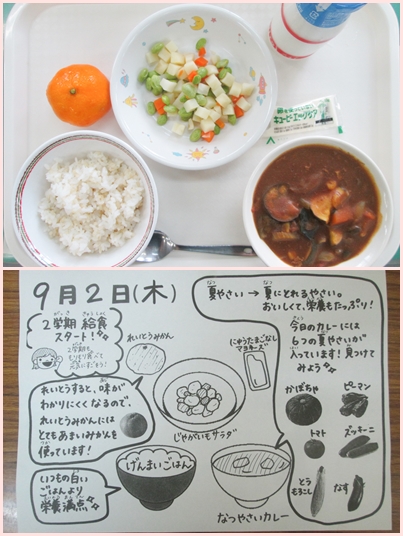 キユーピーエッグケア
9月2日(木)
2学期 給食
がっき きゅうしょく
スタート!
2学期も
もりもり食べて
元気にすごそう!
れいとうみかん
れいとうすると、味が
わかりにくくなるので、
れいとうみかんには
とてもあまいみかんを
使っています!
いつもの白い
ごはんより
栄養満点
えいようまんてん
にゅうたまごなし
マヨネーズ
じゃがいもサラダ
げんまいごはん
なつやさいカレー
夏やさい → 夏にとれるやさい。
おいしくて、栄養もたっぷり!
今日のカレーには
6つの夏やさいが
入っています!見つけて
みよう
かぼちゃ
ピーマン
トマト
ズッキーニ
とう
もろこし
なす